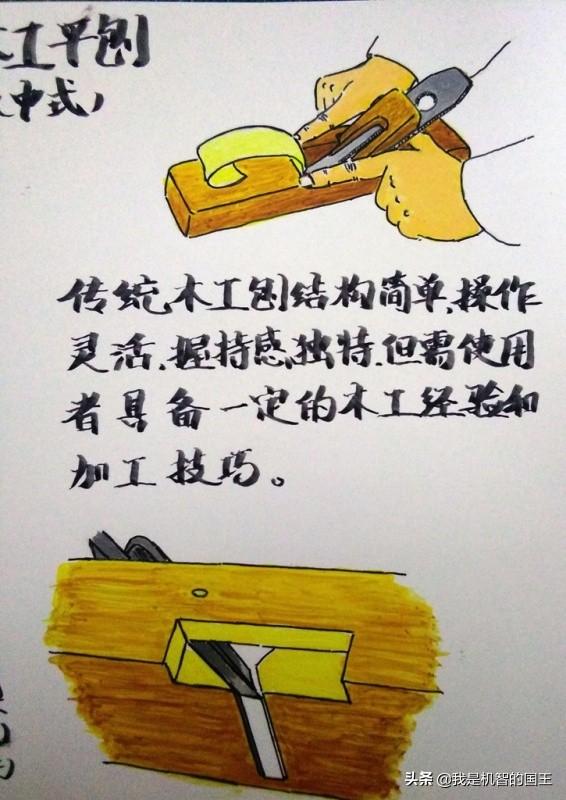 木工平刨
（中式）
传统木工刨结构简单、操作
灵活、握持感独特、但需使用
者具备一定的木工经验和
加工技巧。
头条 @我是机智的国王